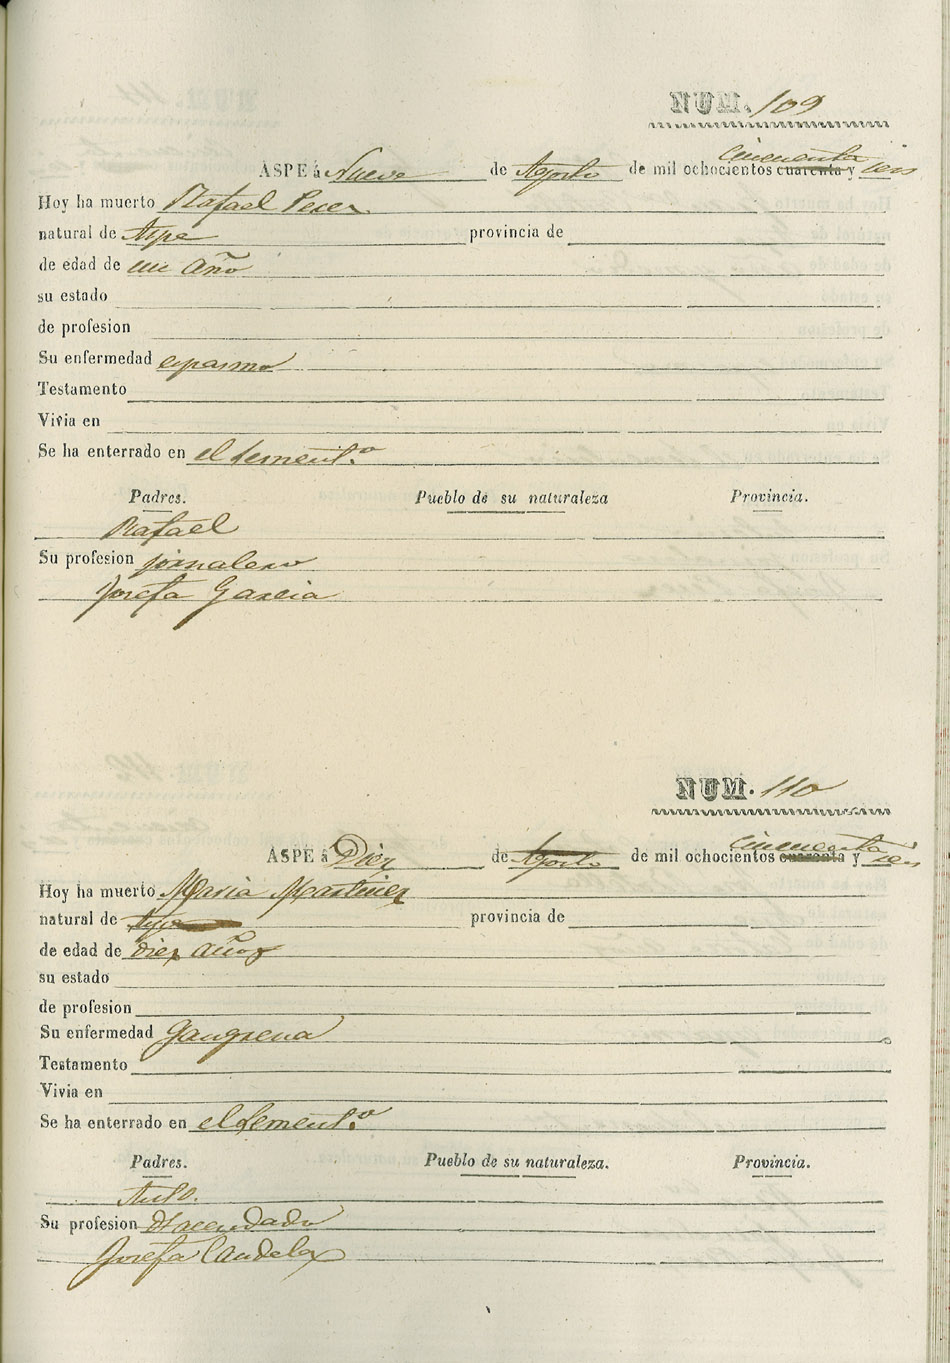 NUM. 109
ASPE á Nueve de Agosto de mil ochocientos cuarenta cincuenta y seis
Hoy ha muerto Rafael Perez
natural de Aspe provincia de
de edad de un año
su estado
de profesion
Su enfermedad espasmo
Testamento
Vivia en
Se ha enterrado en el sement.º
Padres. Pueblo de su naturaleza Provincia.
Rafael
Su profesion jornalero
Josefa Garcia
NUM. 110
ASPE á Diez de Agosto de mil ochocientos cuarenta cincuenta y seis
Hoy ha muerto Maria Martinez
natural de Aspe provincia de
de edad de diez años
su estado
de profesion
Su enfermedad Gangrena
Testamento
Vivia en
Se ha enterrado en el sement.º
Padres. Pueblo de su naturaleza. Provincia.
Ant.º
Su profesion Hacendado
Josefa Candela